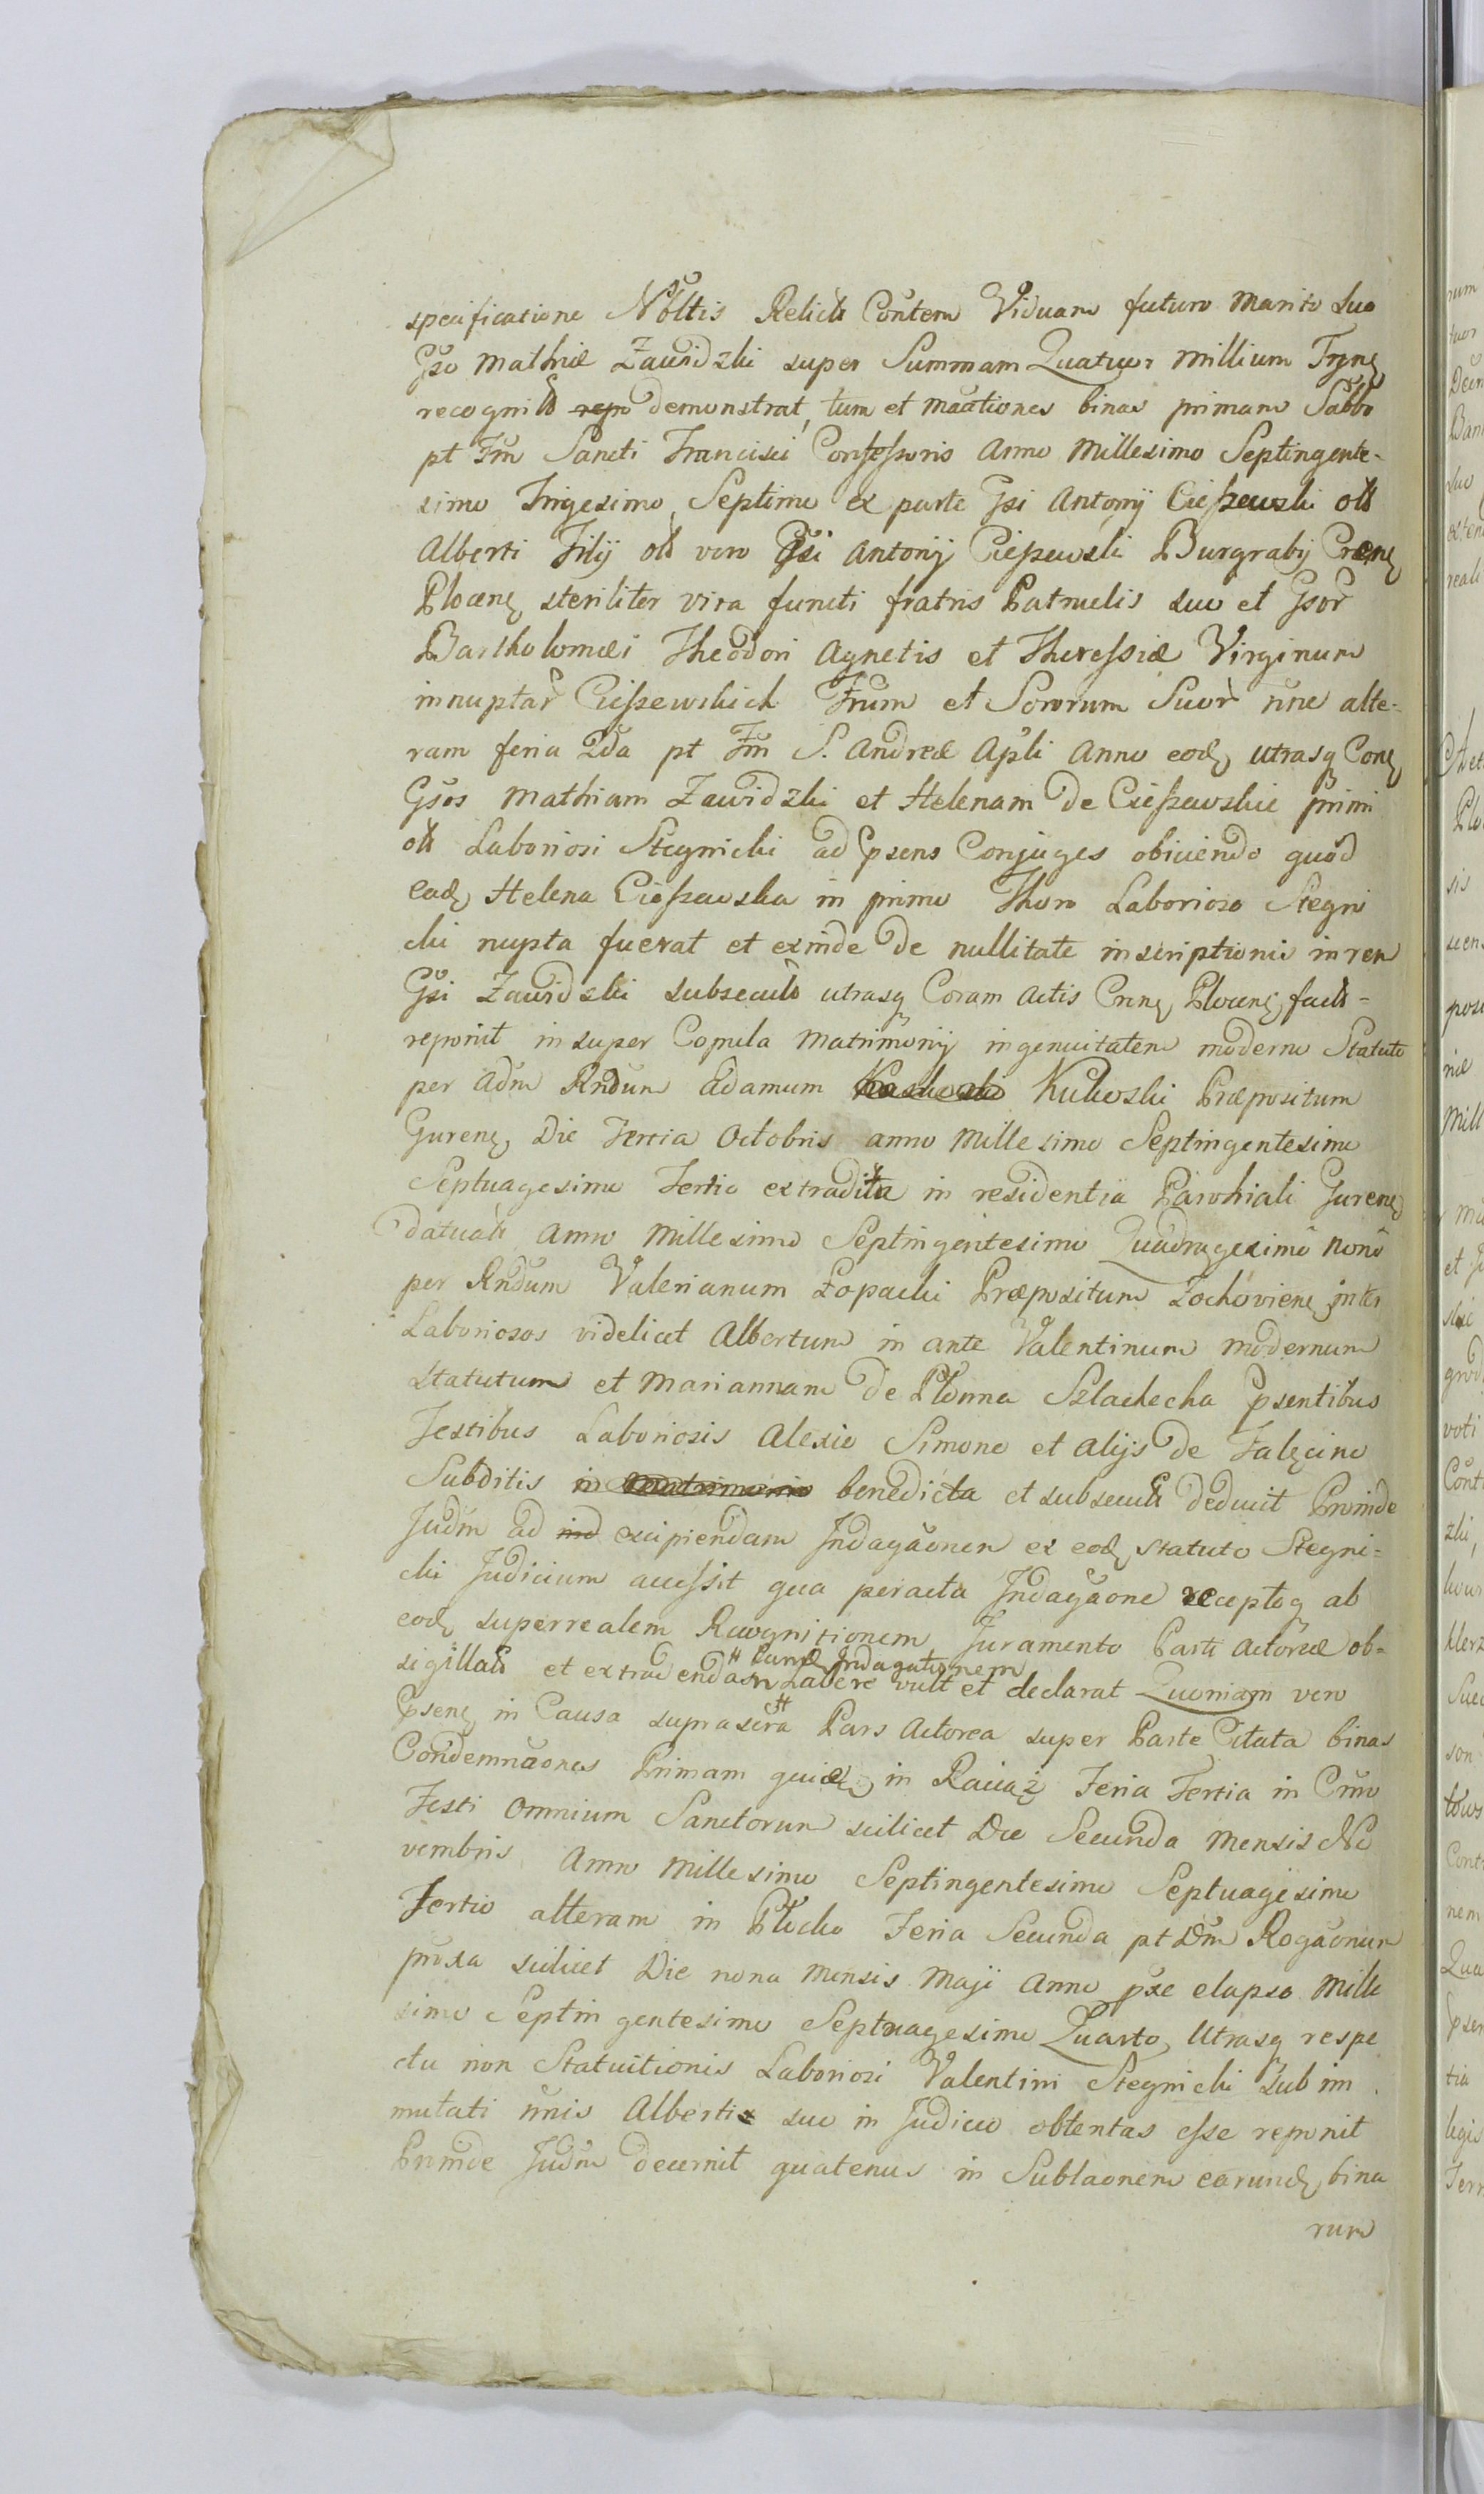 specificatione Nobltis Relicta Contem Viduam futuro Marito Suo
Gso Mathiæ Zawidzki super Summam Quatuor Millium Fryneꝫ
recognita repo demonstrat, tum et Mactiones binas primam Sabbo
pt Fm Sancti Francisci Confessoris Anno Millesimo Septingente-
simo Trigesimo Septimo ex parte Gsi Antonij Cieszewski olt
Alberti Filij olt vero Gsi Antonij Cieszewski Burgrabij Crenꝫ
Plocenꝫ steriliter vita functi fratris Patruelis suo et Gsor
Bartholomæi Theodori Agnetis et Theressiæ Virginum
innuptar Cieszewskich Frum et Sororum Suor nne alte-
ram feria 2da pt Fm S. Andreæ Apli Anno eodꝫ utrasq Conꝫ
Gsos Mathiam Zawidzki et Helenam de Cieszewskie primi
olt Laboriosi Stegnicki ad psens Conjuges obiiciendo quod
eadꝫ Helena Cieszewska in primo Thoro Laborioso Stegni
cki nupta fuerat et exinde de nullitate inscriptionis in rem
Gsi Zawidzki subsecuta utrasq Coram Actis Crnꝫ Plocenꝫ facta-
reponit insuper Copula Matrimonij ingenuitatem moderno Statuto
per Adm Rndum Adamum Kukoski Præpositum
Gurenꝫ Die Tertia Octobris anno Millesimo Septingentesimo
Septuagesimo Tertio extradita in residentia Parochiali Gurenꝫ
datuata Anno Millesimo Septingentesimo Quadragesimo Nono
per Rndum Valerianum Łopacki Præpositum Zochovienꝫ inter
Laboriosos videlicet Albertum in ante Valentinum modernum
Statutum et Mariannam de Płonna Szlachecka psentibus
Testibus Laboriosis Alexio Simone et alijs de Falęcino
Subditis in matrimonio benedicta et subsecuta deducit Proinde
Judm ad ind excipiendam Indagaonem ex eodꝫ Statuto Stegni-
cki Judicium accessit qua peracta Indagaone receptoq ab
eodꝫ superrealem Recognitionem Juramento Parti Actoreæ ob-
# Eandꝫ Indagationem
sigillata et extradendam habere vult et declarat Quoniam vero
psenꝫ in Causa suprascra # Pars Actorea super Parte Citata binas
Condemnaones Primam quidꝫ in Raciąż Feria Tertia in Crno
Festi Omnium Sanctorum scilicet Die Secunda Mensis No
vembris Anno Millesimo Septingentesimo Septuagesimo
Tertio alteram in Płocko Feria Secunda pt Dm Rogaonum
proxa scilicet Die nona Mensis Maji Anno pxe elapso Mille
simo Septin gentesimo Septuagesimo Quarto, Utrasq respe
ctu non Statuitionis Laboriosi Valentini Stegnicki sub im
mutati nnis Alberti suo in Judicio obtentas esse reponit
Proinde Judm decernit quatenus in Sublaonem earundꝫ bina
rum